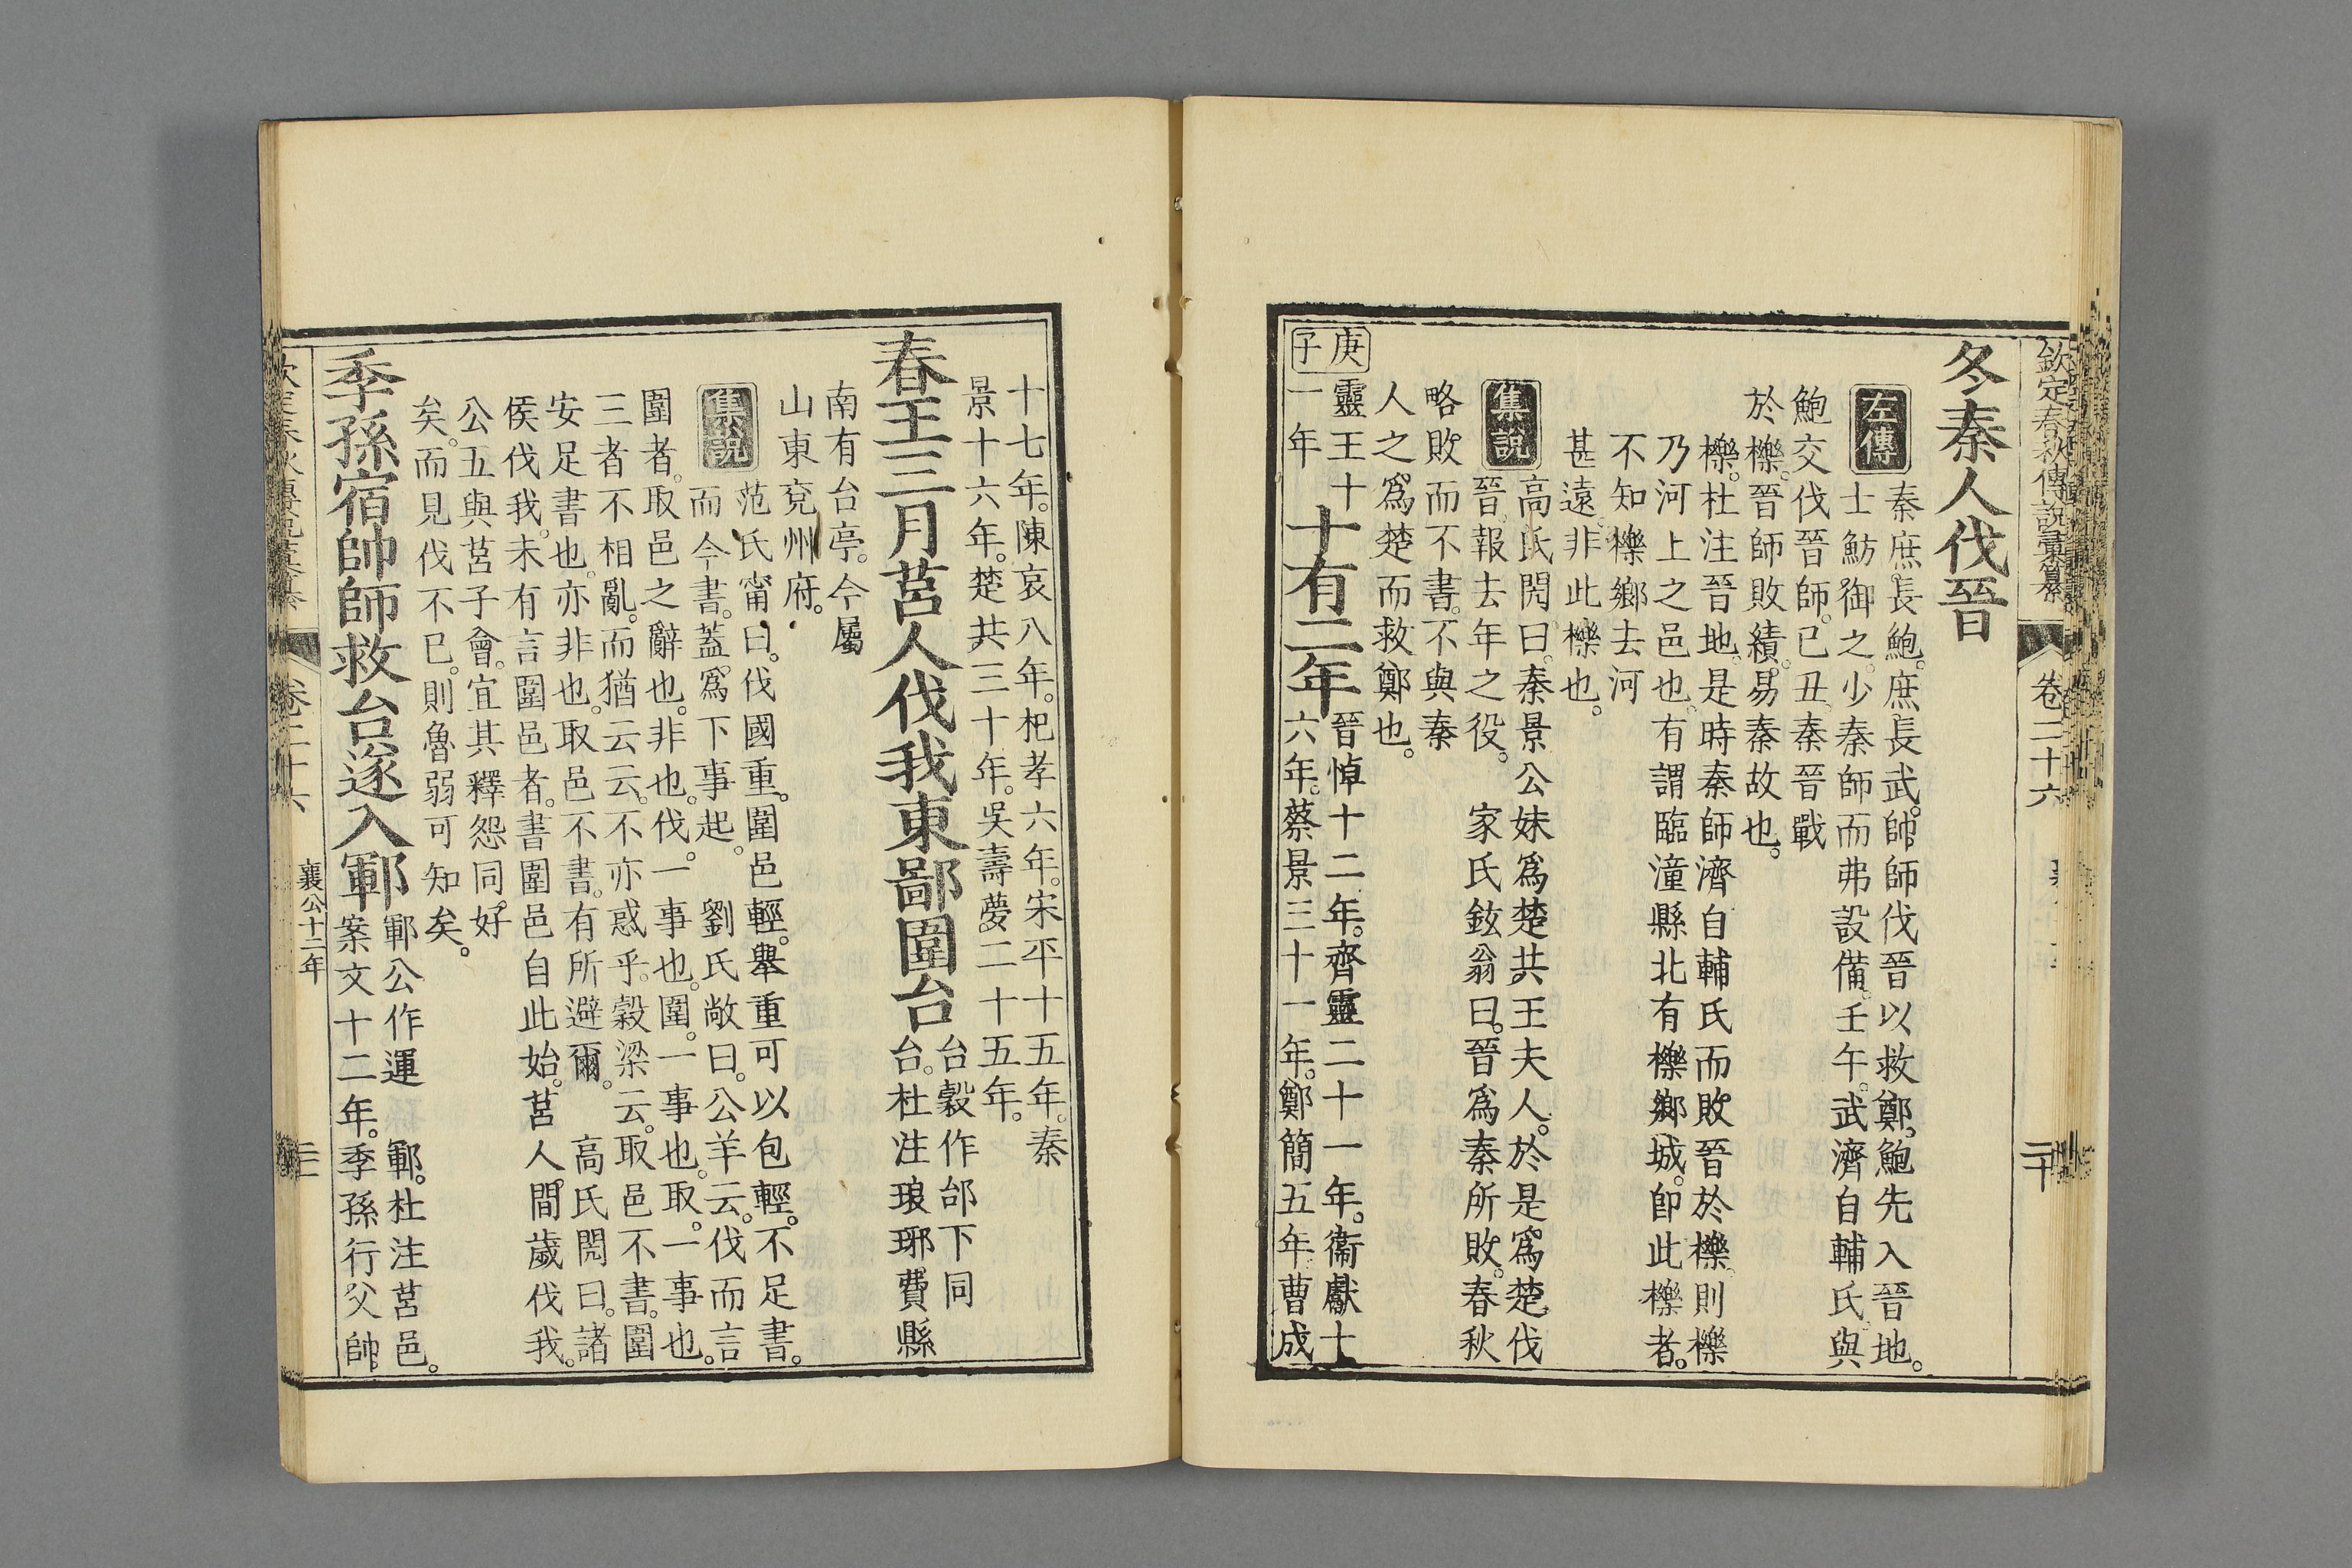 欽定春秋傳說彙纂 卷二十六
冬秦人伐晉
左傳
秦庶長鮑。庶長武。帥師伐晉以救鄭。鮑先入晉地。
士魴御之。少秦師而弗設備。壬午。武濟自輔氏。與
鮑交伐晉師。己丑。秦晉戰
於櫟。晉師敗績。易秦故也。
櫟。杜注晉地。是時秦師濟自輔氏而敗晉於櫟。則櫟
乃河上之邑也。有謂臨潼縣北有櫟鄉城。卽此櫟者。
不知櫟鄉去河
甚遠。非此櫟也。
集說
高氏閌曰。秦景公妹爲楚共王夫人。於是爲楚伐
晉。報去年之役。 家氏鉉翁曰。晉爲秦所敗。春秋
略敗而不書。不與秦
人之爲楚而救鄭也。
庚子
靈王十
一年
十有二年
晉悼十二年。齊靈二十一年。衞獻十
六年。蔡景三十一年。鄭簡五年曹成
十七年。陳哀八年。杞孝六年。宋平十五年。秦
景十六年。楚共三十年。吳壽夢二十五年。
春王三月莒人伐我東鄙圍台
台穀作邰下同
台。杜注琅琊費縣
南有台亭。今屬
山東兗州府。
集說
范氏甯曰。伐國重。圍邑輕。舉重可以包輕。不足書。
而今書。蓋爲下事起。 劉氏敞曰。公羊云。伐而言
圍者。取邑之辭也。非也。伐。一事也。圍。一事也。取。一事也。
三者不相亂。而猶云云。不亦惑乎。穀梁云。取邑不書。圍
安足書也。亦非也。取邑不書。有所避爾。 高氏閌曰。諸
侯伐我。未有言圍邑者。書圍邑自此始。莒人間歲伐我。
公五與莒子會。宜其釋怨同好
矣。而見伐不已。則魯弱可知矣。
季孫宿帥師救台遂入鄆
鄆公作運 鄆。杜注莒邑。
案文十二年。季孫行父帥
卷二十六 襄公十二年